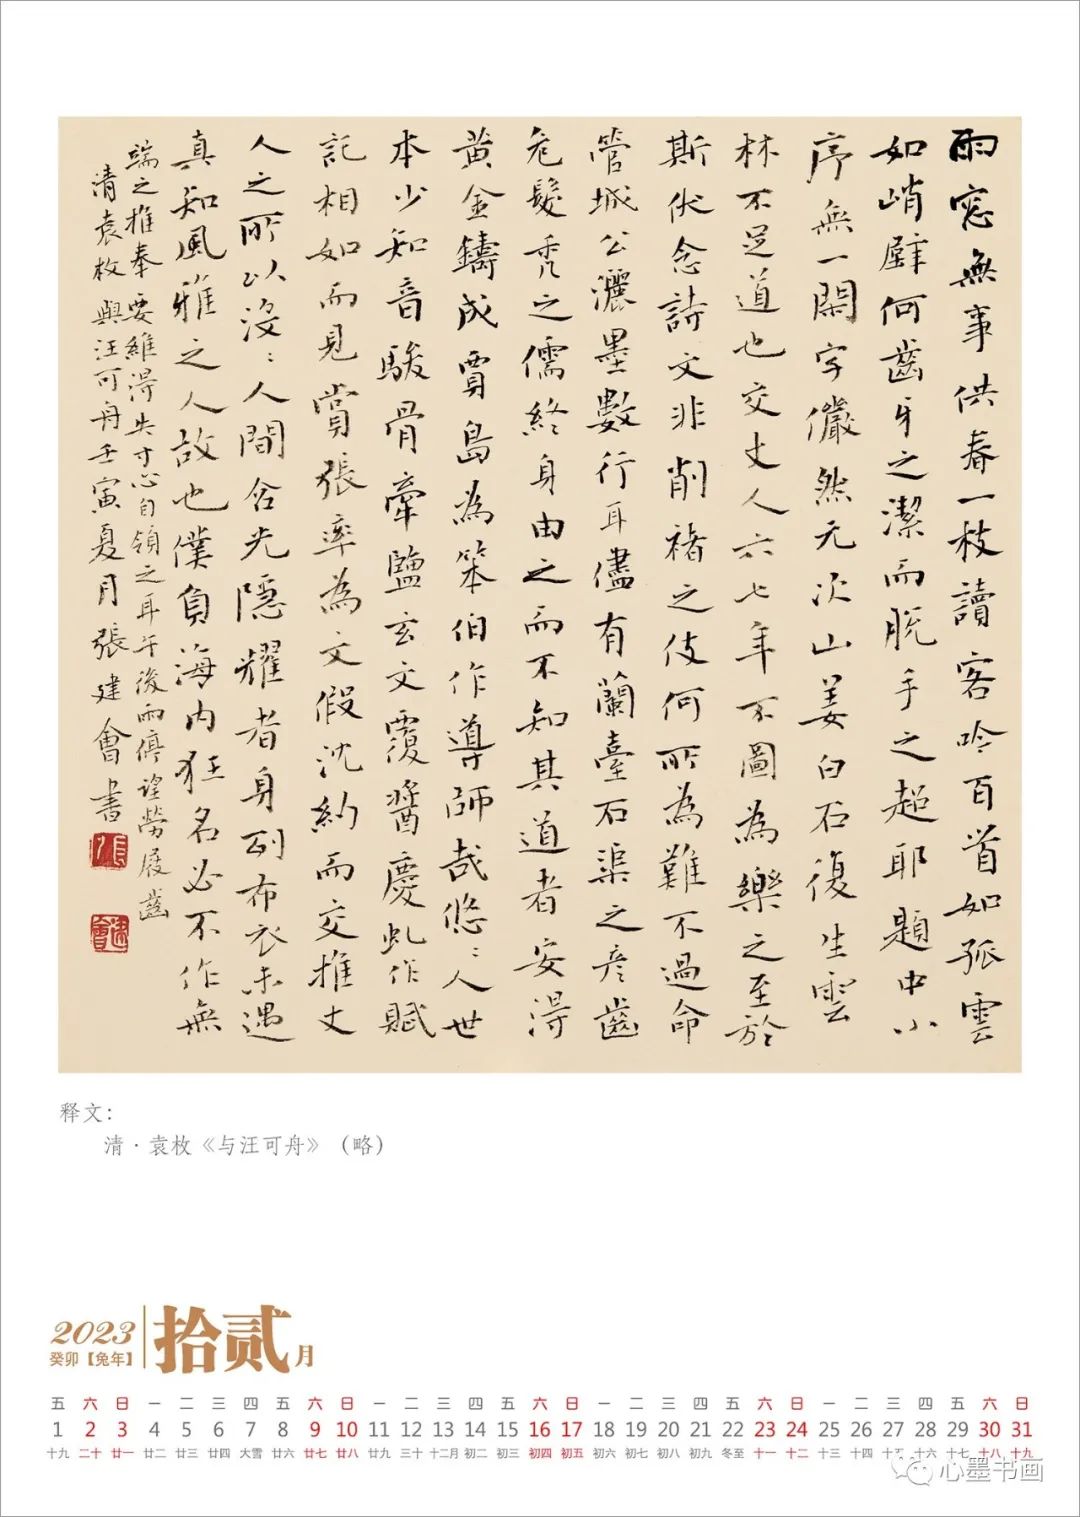 雨窓無事供春一枝讀客吟百首如孤雲
如峭壁何齒牙之潔而脱手之超耶題中小
序無一閑字儼然元次山姜白石復生雲
林不足道也交丈人六七年不圖為樂之至於
斯伏念詩文非削楮之伎何所為難不過命
管城公灑墨數行耳儘有蘭臺石渠之彦齒
危髮秃之儒終身由之而不知其道者安得
黄金鑄成賈島為笨伯作導師哉悠〻人世
本少知音駿骨牽鹽玄文覆醬慶虬作賦
託相如而見賞張率為文假沈約而交推丈
人之所以没〻人間含光隱耀者身列布衣未遇
真知風雅之人故也僕負海内狂名必不作無
端之推奉要維得失寸心自領之耳午後雨停望勞屐齒
清袁枚與汪可舟壬寅夏月張建會書
釋文：
清·袁枚《与汪可舟》（略）
2023
癸卯【兔年】
拾贰月
五 六 日 一 二 三 四 五 六 日 一 二 三 四 五 六 日 一 二 三 四 五 六 日 一 二 三 四 五 六 日
1 2 3 4 5 6 7 8 9 10 11 12 13 14 15 16 17 18 19 20 21 22 23 24 25 26 27 28 29 30 31
十九 二十 廿一 廿二 廿三 廿四 大雪 廿六 廿七 廿八 廿九 三十 十二月 初二 初三 初四 初五 初六 初七 初八 初九 冬至 十一 十二 十三 十四 十五 十六 十七 十八 十九
心墨书画